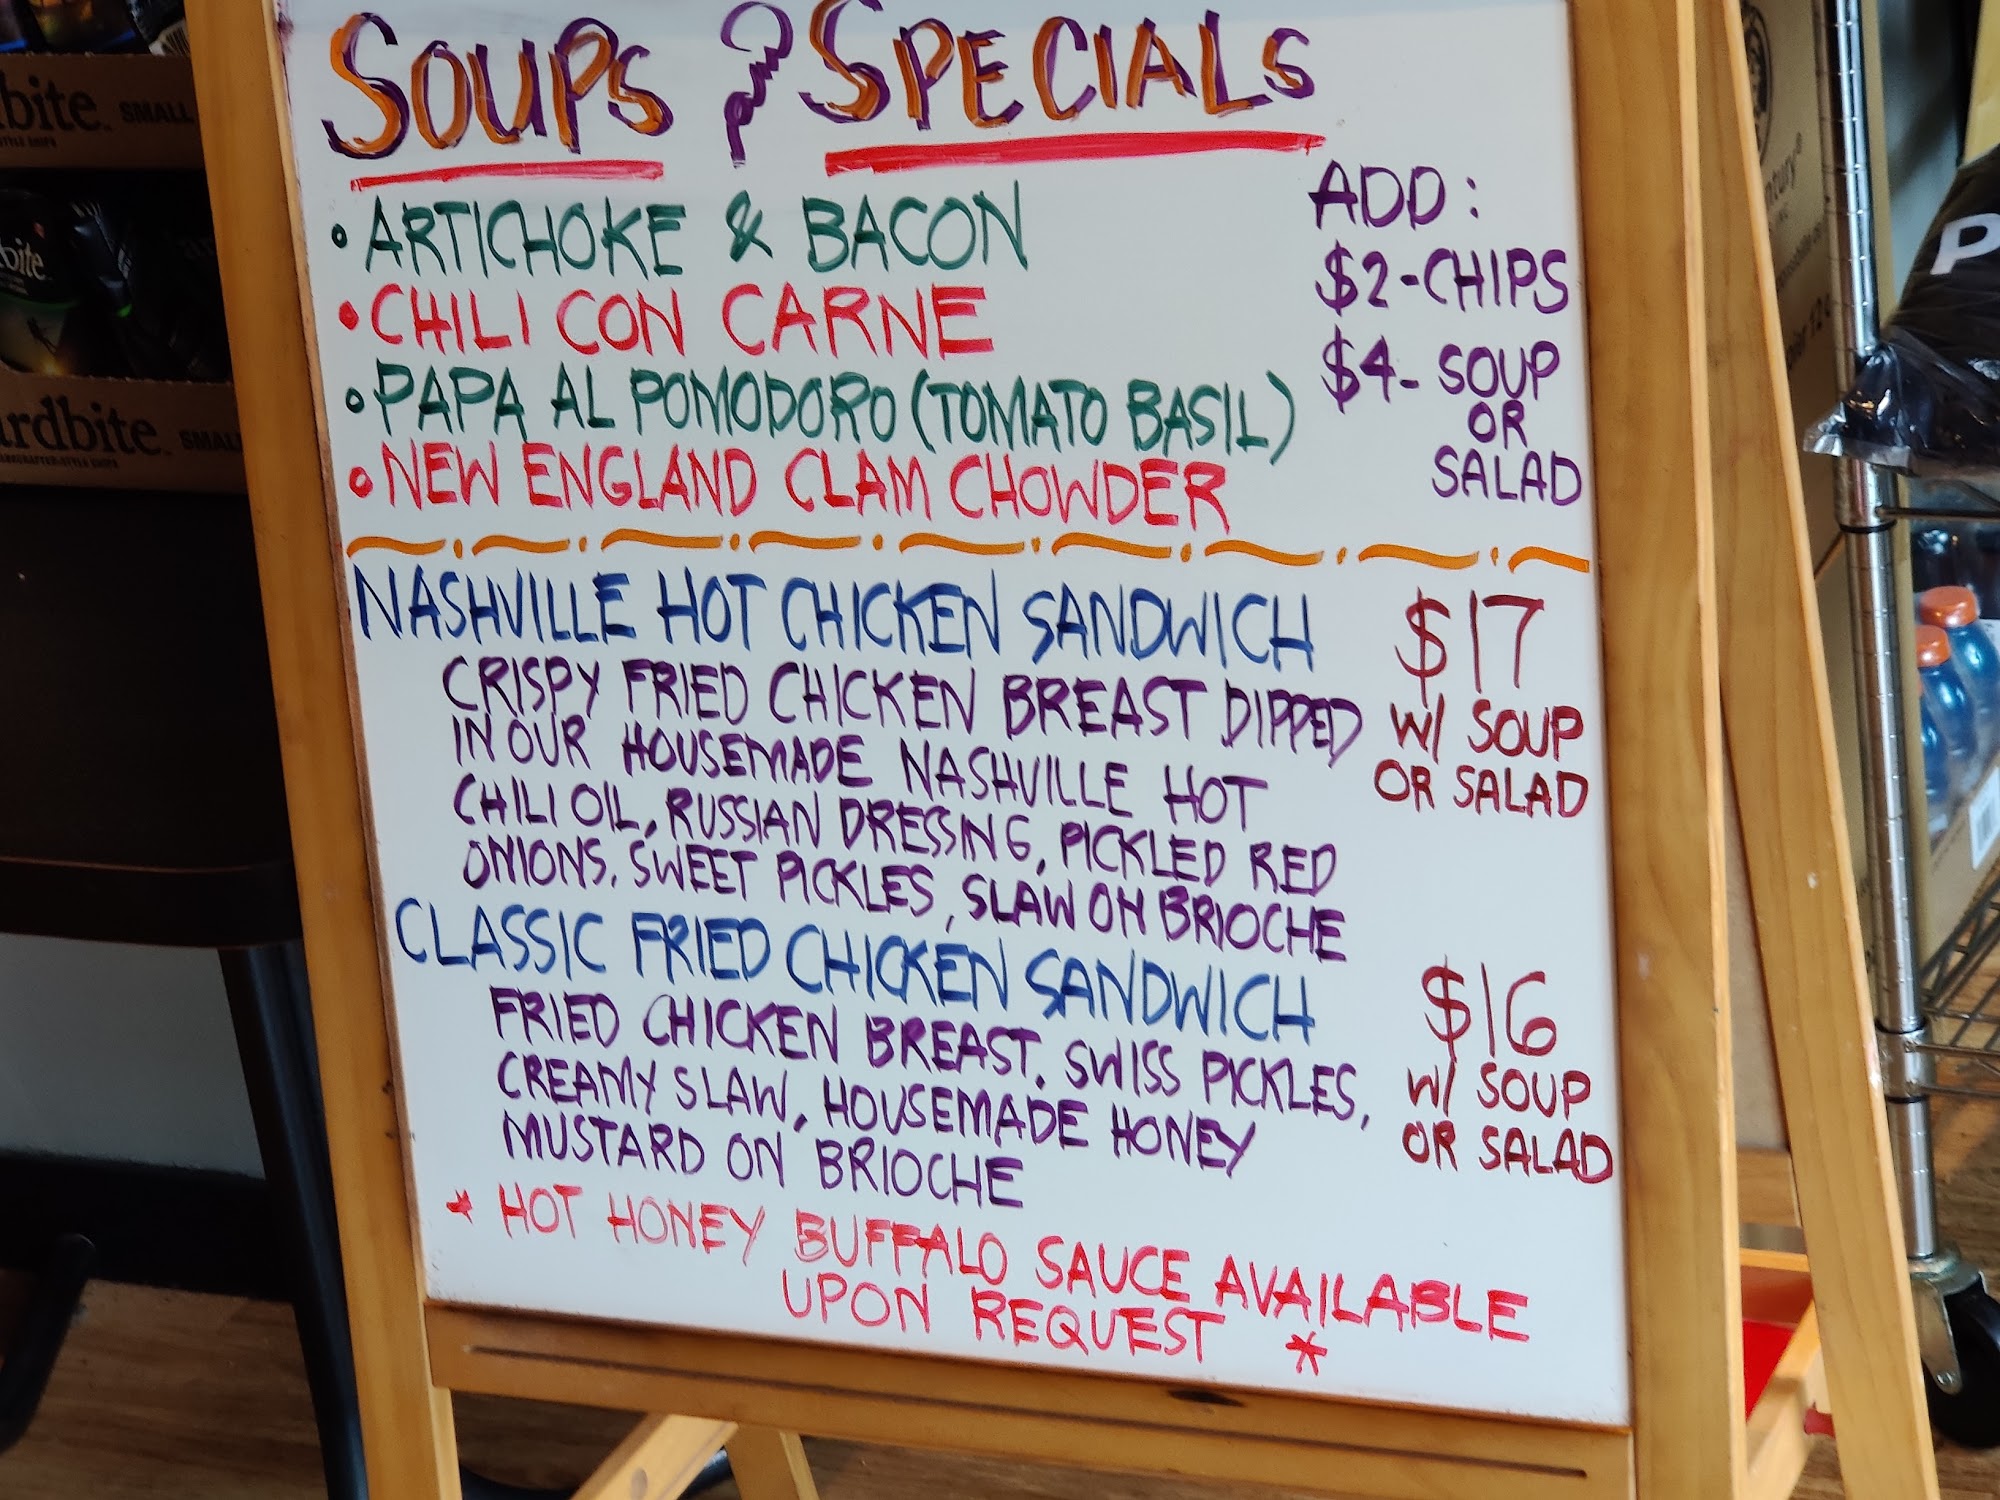 SOUPS & SPECIALS
• ARTICHOKE & BACON
• CHILI CON CARNE
• PAPA AL POMODORO (TOMATO BASIL)
• NEW ENGLAND CLAM CHOWDER
ADD:
$2-CHIPS
$4- SOUP
OR
SALAD
NASHVILLE HOT CHICKEN SANDWICH
CRISPY FRIED CHICKEN BREAST DIPPED
IN OUR HOUSEMADE NASHVILLE HOT
CHILI OIL, RUSSIAN DRESSING, PICKLED RED
ONIONS, SWEET PICKLES, SLAW ON BRIOCHE
$17
W/ SOUP
OR SALAD
CLASSIC FRIED CHICKEN SANDWICH
FRIED CHICKEN BREAST, SWISS PICKLES,
CREAMY SLAW, HOUSEMADE HONEY
MUSTARD ON BRIOCHE
$16
W/ SOUP
OR SALAD
* HOT HONEY BUFFALO SAUCE AVAILABLE
UPON REQUEST *
bite SMALL
bite
rdbite SMALL
P